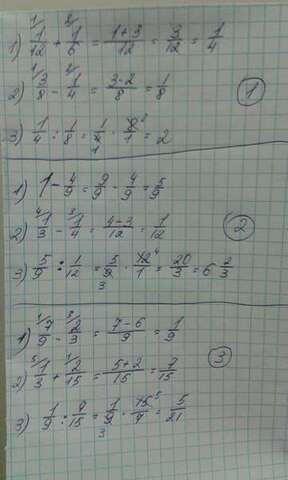 1) ¹⁄1/12 + ²⁄1/6 = (1+3)/12 = 3/12 = 1/4
2) ¹⁄3/8 - ²⁄1/4 = (3-2)/8 = 1/8
①
3) 1/4 : 1/8 = 1/4 · 8/1 = 2
1) 1 - 4/9 = 9/9 - 4/9 = 5/9
2) ⁴⁄1/3 - ³⁄1/4 = (4-3)/12 = 1/12
②
3) 5/9 : 1/12 = 5/9 · 12/1 = 20/3 = 6 2/3
1) ¹⁄7/9 - ³⁄2/3 = (7-6)/9 = 1/9
③
2) ⁵⁄1/3 + ¹⁄2/15 = (5+2)/15 = 7/15
3) 1/9 : 7/15 = 1/9 · 15/7 = 5/21